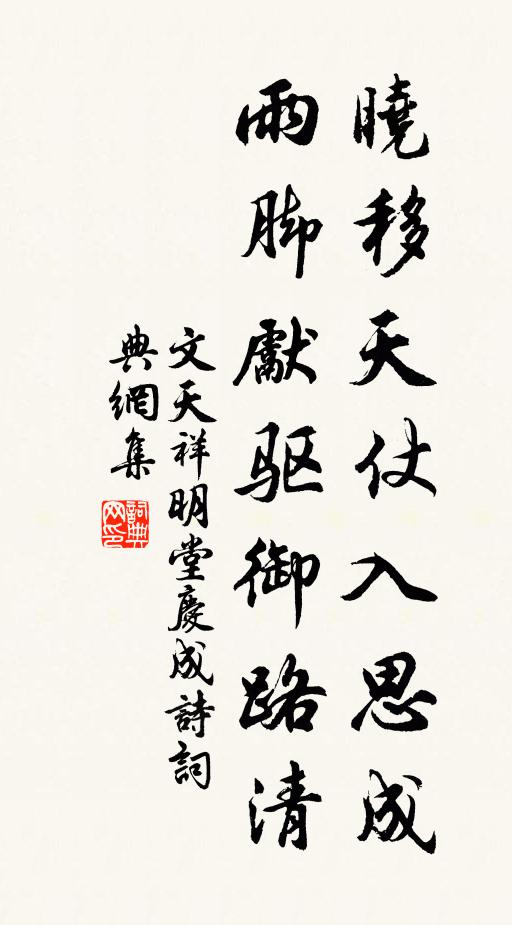 曉移天仗入思成
雨脚獻驱御路清
文天祥明堂慶成詩詞
典網集
詞典網印